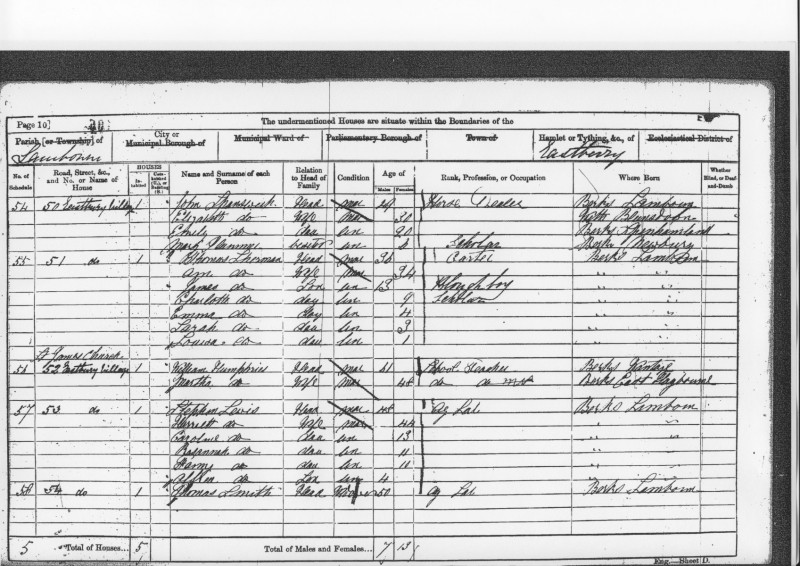 Page 10]
The undermentioned Houses are situate within the Boundaries of the
Parish [or Township] of
City or Municipal Borough of
Municipal Ward of
Parliamentary Borough of
Town of
Hamlet or Tything, &c., of
Ecclesiastical District of
Lambourn
Eastbury
No. of Schedule
Road, Street, &c., and No. or Name of House
HOUSES
In-habited
Name and Surname of each Person
Relation to Head of Family
Condition
Age of
Males
Females
Rank, Profession, or Occupation
Where Born
Whether Blind, or Deaf-and-Dumb
54 50 Eastbury Village 1 John Head mar 49 Horse Dealer Berks Lambourn
Elizabeth do Wife mar 30 Blunsdon
Emily do dau 20 Berks Speenhamland
Mark un 8 Scholar Berks Newbury
55 51 do 1 Thomas Head mar 36 Carter Berks Lambourn
Ann do Wife mar 34 " "
James do Son un 13 Ploughboy " "
Charlotte do dau un 9 Scholar " "
Emma do dau un 4 " "
Sarah do dau un 3 " "
Louisa do dau un 1 " "
St James Church
56 52 Eastbury Village 1 William Humphries Head mar 41 School Teacher Berks Wantage
Martha do Wife mar 48 do do Berks East Hagbourne
57 53 do 1 Stephen Lewis Head mar 48 Ag Lab Berks Lambourn
Harriett do Wife mar 44 " "
Caroline do dau un 13 " "
Rosannah do dau un 11 " "
do dau un 11 " "
do Son un 4 " "
58 54 do 1 Thomas Smith Head 50 Ag Lab Berks Lambourn
5 Total of Houses... 5 Total of Males and Females... 7 13
Eng.—Sheet D.